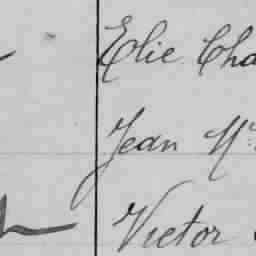 Elie Cha
Jean Mc
Victor